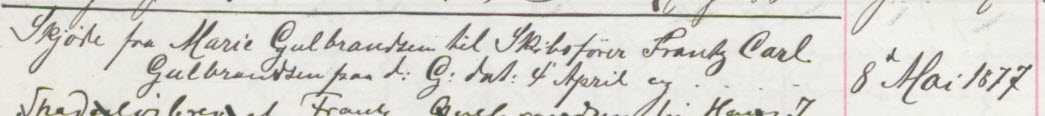 Skjöde fra Marie Gulbrandsen til Skibsförer Frantz Carl
Gulbrandsen paa d: G: dat: 4 April og . . . 8d Mai 1877